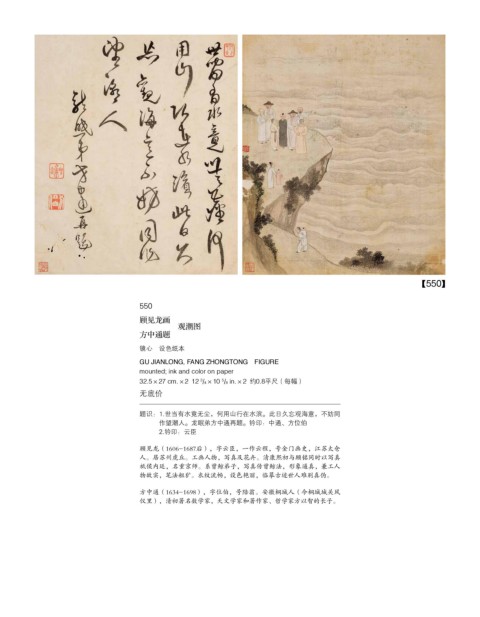 世当有水竟无尘何
用山行在水滨此日久
忘观海意不妨同作
望潮人
龙眠弟方中通再题
【550】
550
顾见龙画
方中通题
观潮图
镜心 设色纸本
GU JIANLONG, FANG ZHONGTONG FIGURE
mounted; ink and color on paper
32.5 × 27 cm. × 2 12 3/4 × 10 5/8 in. × 2 约0.8平尺（每幅）
无底价
题识：1.世当有水竟无尘，何用山行在水滨。此日久忘观海意，不妨同
作望潮人。龙眠弟方中通再题。钤印：中通、方位伯
2.钤印：云臣
顾见龙（1606-1687后），字云臣，一作云程，号金门画史，江苏太仓
人。居苏州虎丘。工画人物，写真及花卉。清康熙初与顾铭同时以写真
祗侯内廷，名重京师。系曾鲸弟子，写真传曾鲸法，形象逼真，兼工人
物故实，笔法粗犷，衣纹流畅，设色艳丽，临摹古迹世人难别真伪。
方中通（1634-1698），字位伯，号陪翁。安徽桐城人（今桐城城关凤
仪里），清初著名数学家，天文学家和著作家。哲学家方以智的长子。